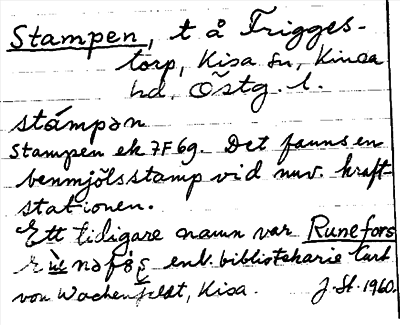 Stampen, t å Trigges-
torp, Kisa sn, Kinda
hd, Östg. l.
stámpən
Stampen ek 7F 6g. Det fanns en
benmjölsstamp vid nuv. kraft-
stationen.
Ett tidigare namn var Runefors
enl. bibliotekarie Carl
von Wachenfeldt, Kisa. J. St. 1960.